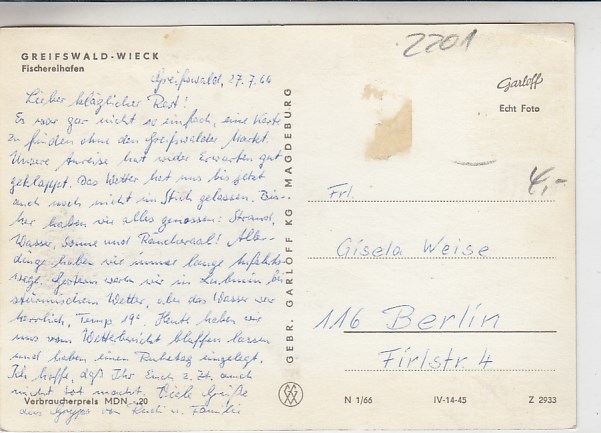 GREIFSWALD-WIECK
Fischereihafen
Greifswald, 27.7.66
Lieber kläglicher Rest!
Es war gar nicht so einfach, eine Karte
zu finden ohne den Greifswalder Markt.
Unsere Anreise hat wider Erwarten gut
geklappt. Das Wetter hat uns bis jetzt
auch noch nicht im Stich gelassen. Bis-
her haben wir alles genossen: Strand,
Wasser, Sonne und Räucheraal! Aller-
dings haben wir immer lange Anfahrts-
wege. Gestern waren wir in Lubmin bei
stürmischem Wetter, aber das Wasser war
herrlich, Temp 19°. Heute haben wir
uns vom Wetterbericht bluffen lassen
und haben einen Ruhetag eingelegt.
Ich hoffe, daß Ihr Euch z. Zt. auch
nicht tot macht. Viele Grüße
aus von u. Familie
Verbraucherpreis MDN -,20
GEBR. GARLOFF KG MAGDEBURG
2201
Garloff
Echt Foto
4,-
Frl.
Gisela Weise
116 Berlin
Firlstr. 4
N 1/66 IV-14-45 Z 2933